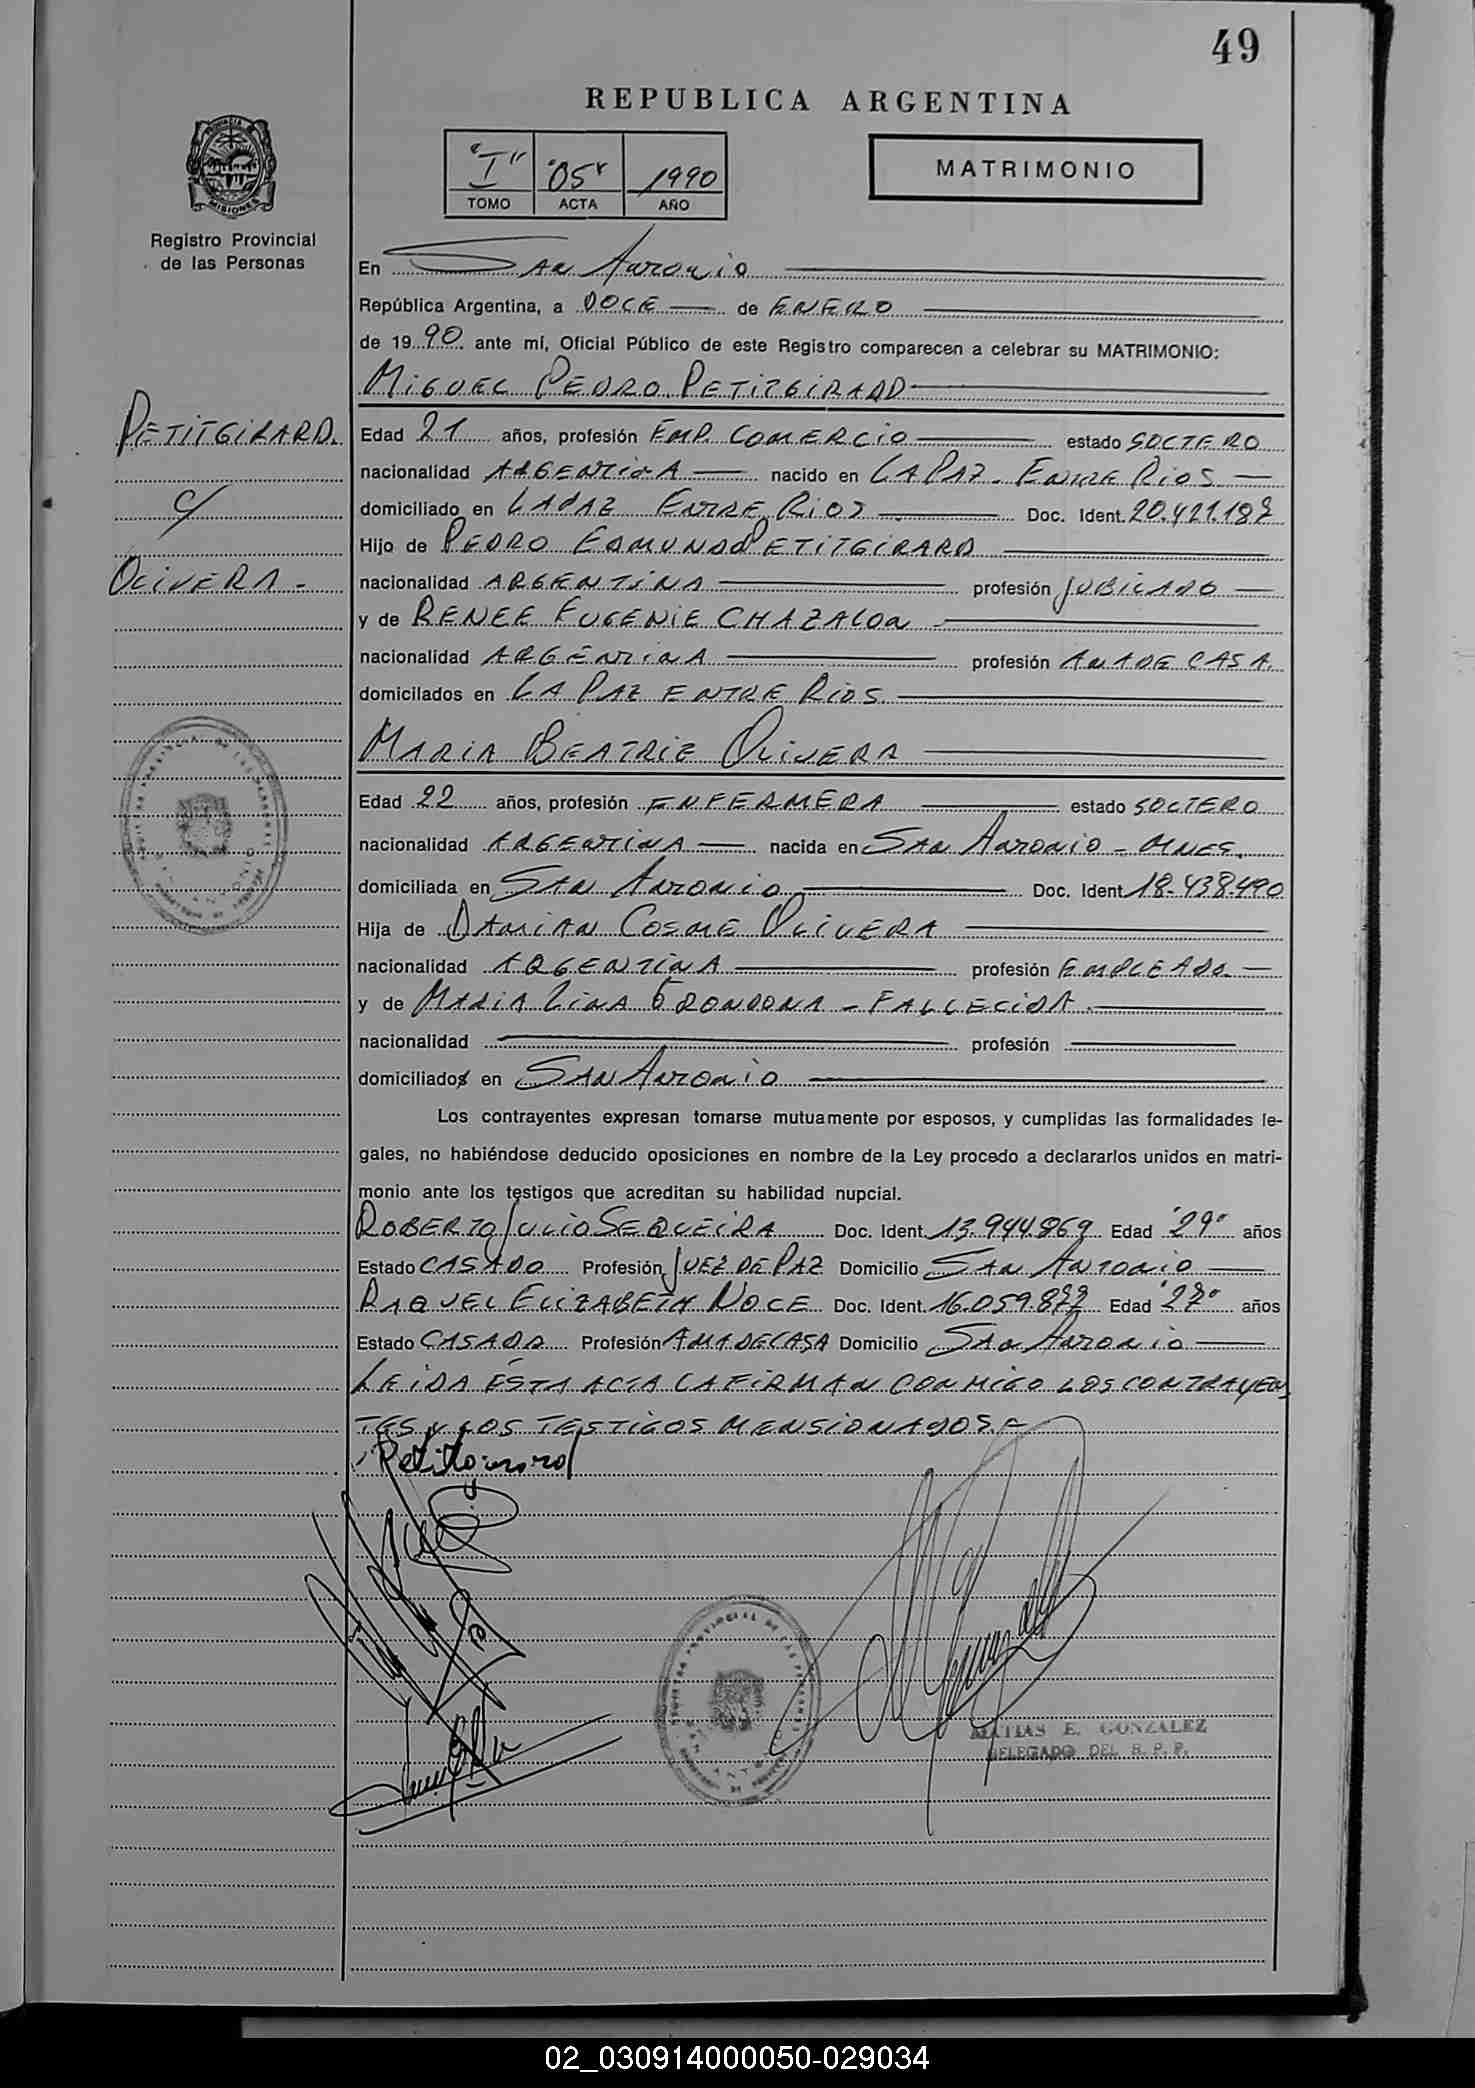 49
REPUBLICA ARGENTINA
"I" "05" 1990
TOMO ACTA AÑO
MATRIMONIO
PROVINCIA DE MISIONES
Registro Provincial
de las Personas
En San Antonio
República Argentina, a DOCE de ENERO
de 1990 ante mí, Oficial Público de este Registro comparecen a celebrar su MATRIMONIO:
MIGUEL PEDRO PETITGIRARD
PETITGIRARD.
c/
OLIVERA-
Edad 21 años, profesión EMP. COMERCIO estado SOLTERO
nacionalidad ARGENTINA nacido en LA PAZ - ENTRE RIOS
domiciliado en LA PAZ ENTRE RIOS Doc. Ident. 20.421.182
Hijo de PEDRO EDMUNDO PETITGIRARD
nacionalidad ARGENTINA profesión JUBILADO
y de RENEE EUGENIE CHAZALON
nacionalidad ARGENTINA profesión AMA DE CASA.
domicilados en LA PAZ ENTRE RIOS.
MARIA BEATRIZ OLIVERA
Edad 22 años, profesión ENFERMERA estado SOLTERO
nacionalidad ARGENTINA nacida en SAN ANTONIO - MNES.
domiciliada en SAN ANTONIO Doc. Ident. 18.438.490
Hija de DAMIAN COSME OLIVERA
nacionalidad ARGENTINA profesión EMPLEADO
y de MARIA LINA GRONDONA - FALLECIDA
nacionalidad profesión
domiciliados en SAN ANTONIO
Los contrayentes expresan tomarse mutuamente por esposos, y cumplidas las formalidades le-
gales, no habiéndose deducido oposiciones en nombre de la Ley procedo a declararlos unidos en matri-
monio ante los testigos que acreditan su habilidad nupcial.
ROBERTO JULIO SEQUEIRA Doc. Ident. 13.944.869 Edad "29" años
Estado CASADO Profesión JUEZ DE PAZ Domicilio SAN ANTONIO
RAQUEL ELIZABETH NOCE Doc. Ident. 16.059.872 Edad "27" años
Estado CASADA Profesión AMA DE CASA Domicilio SAN ANTONIO
LEIDA ESTA ACTA LA FIRMAN CONMIGO LOS CONTRAYEN
TES Y LOS TESTIGOS MENSIONADOS.-
Petitgirard
MATIAS E. GONZALEZ
DELEGADO DEL R. P. P.
02_030914000050-029034